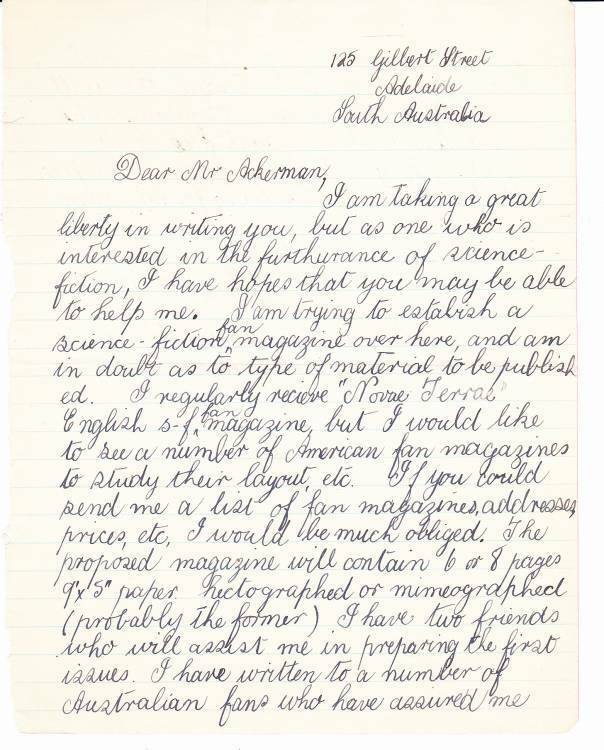 125 Gilbert Street
Adelaide
South Australia
Dear Mr Ackerman,
I am taking a great
liberty in writing you, but as one who is
interested in the furthurance of science-
fiction, I have hopes that you may be able
to help me. I am trying to estabish a
science-fiction fan magazine over here, and am
in doubt as to type of material to be publish
ed. I regularly recieve "Novae Terrae"
English s-f fan magazine, but I would like
to see a number of American fan magazines
to study their layout, etc. If you could
send me a list of fan magazines, addresses,
prices, etc, I would be much obliged. The
proposed magazine will contain 6 or 8 pages
9"x5" paper hectographed or mimeographed
(probably the former) I have two friends
who will assist me in preparing the first
issues. I have written to a number of
Australian fans who have assured me